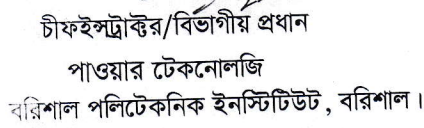 চীফইন্সট্রাক্টর/বিভাগীয় প্রধান
পাওয়ার টেকনোলজি
বরিশাল পলিটেকনিক ইনস্টিটিউট, বরিশাল।